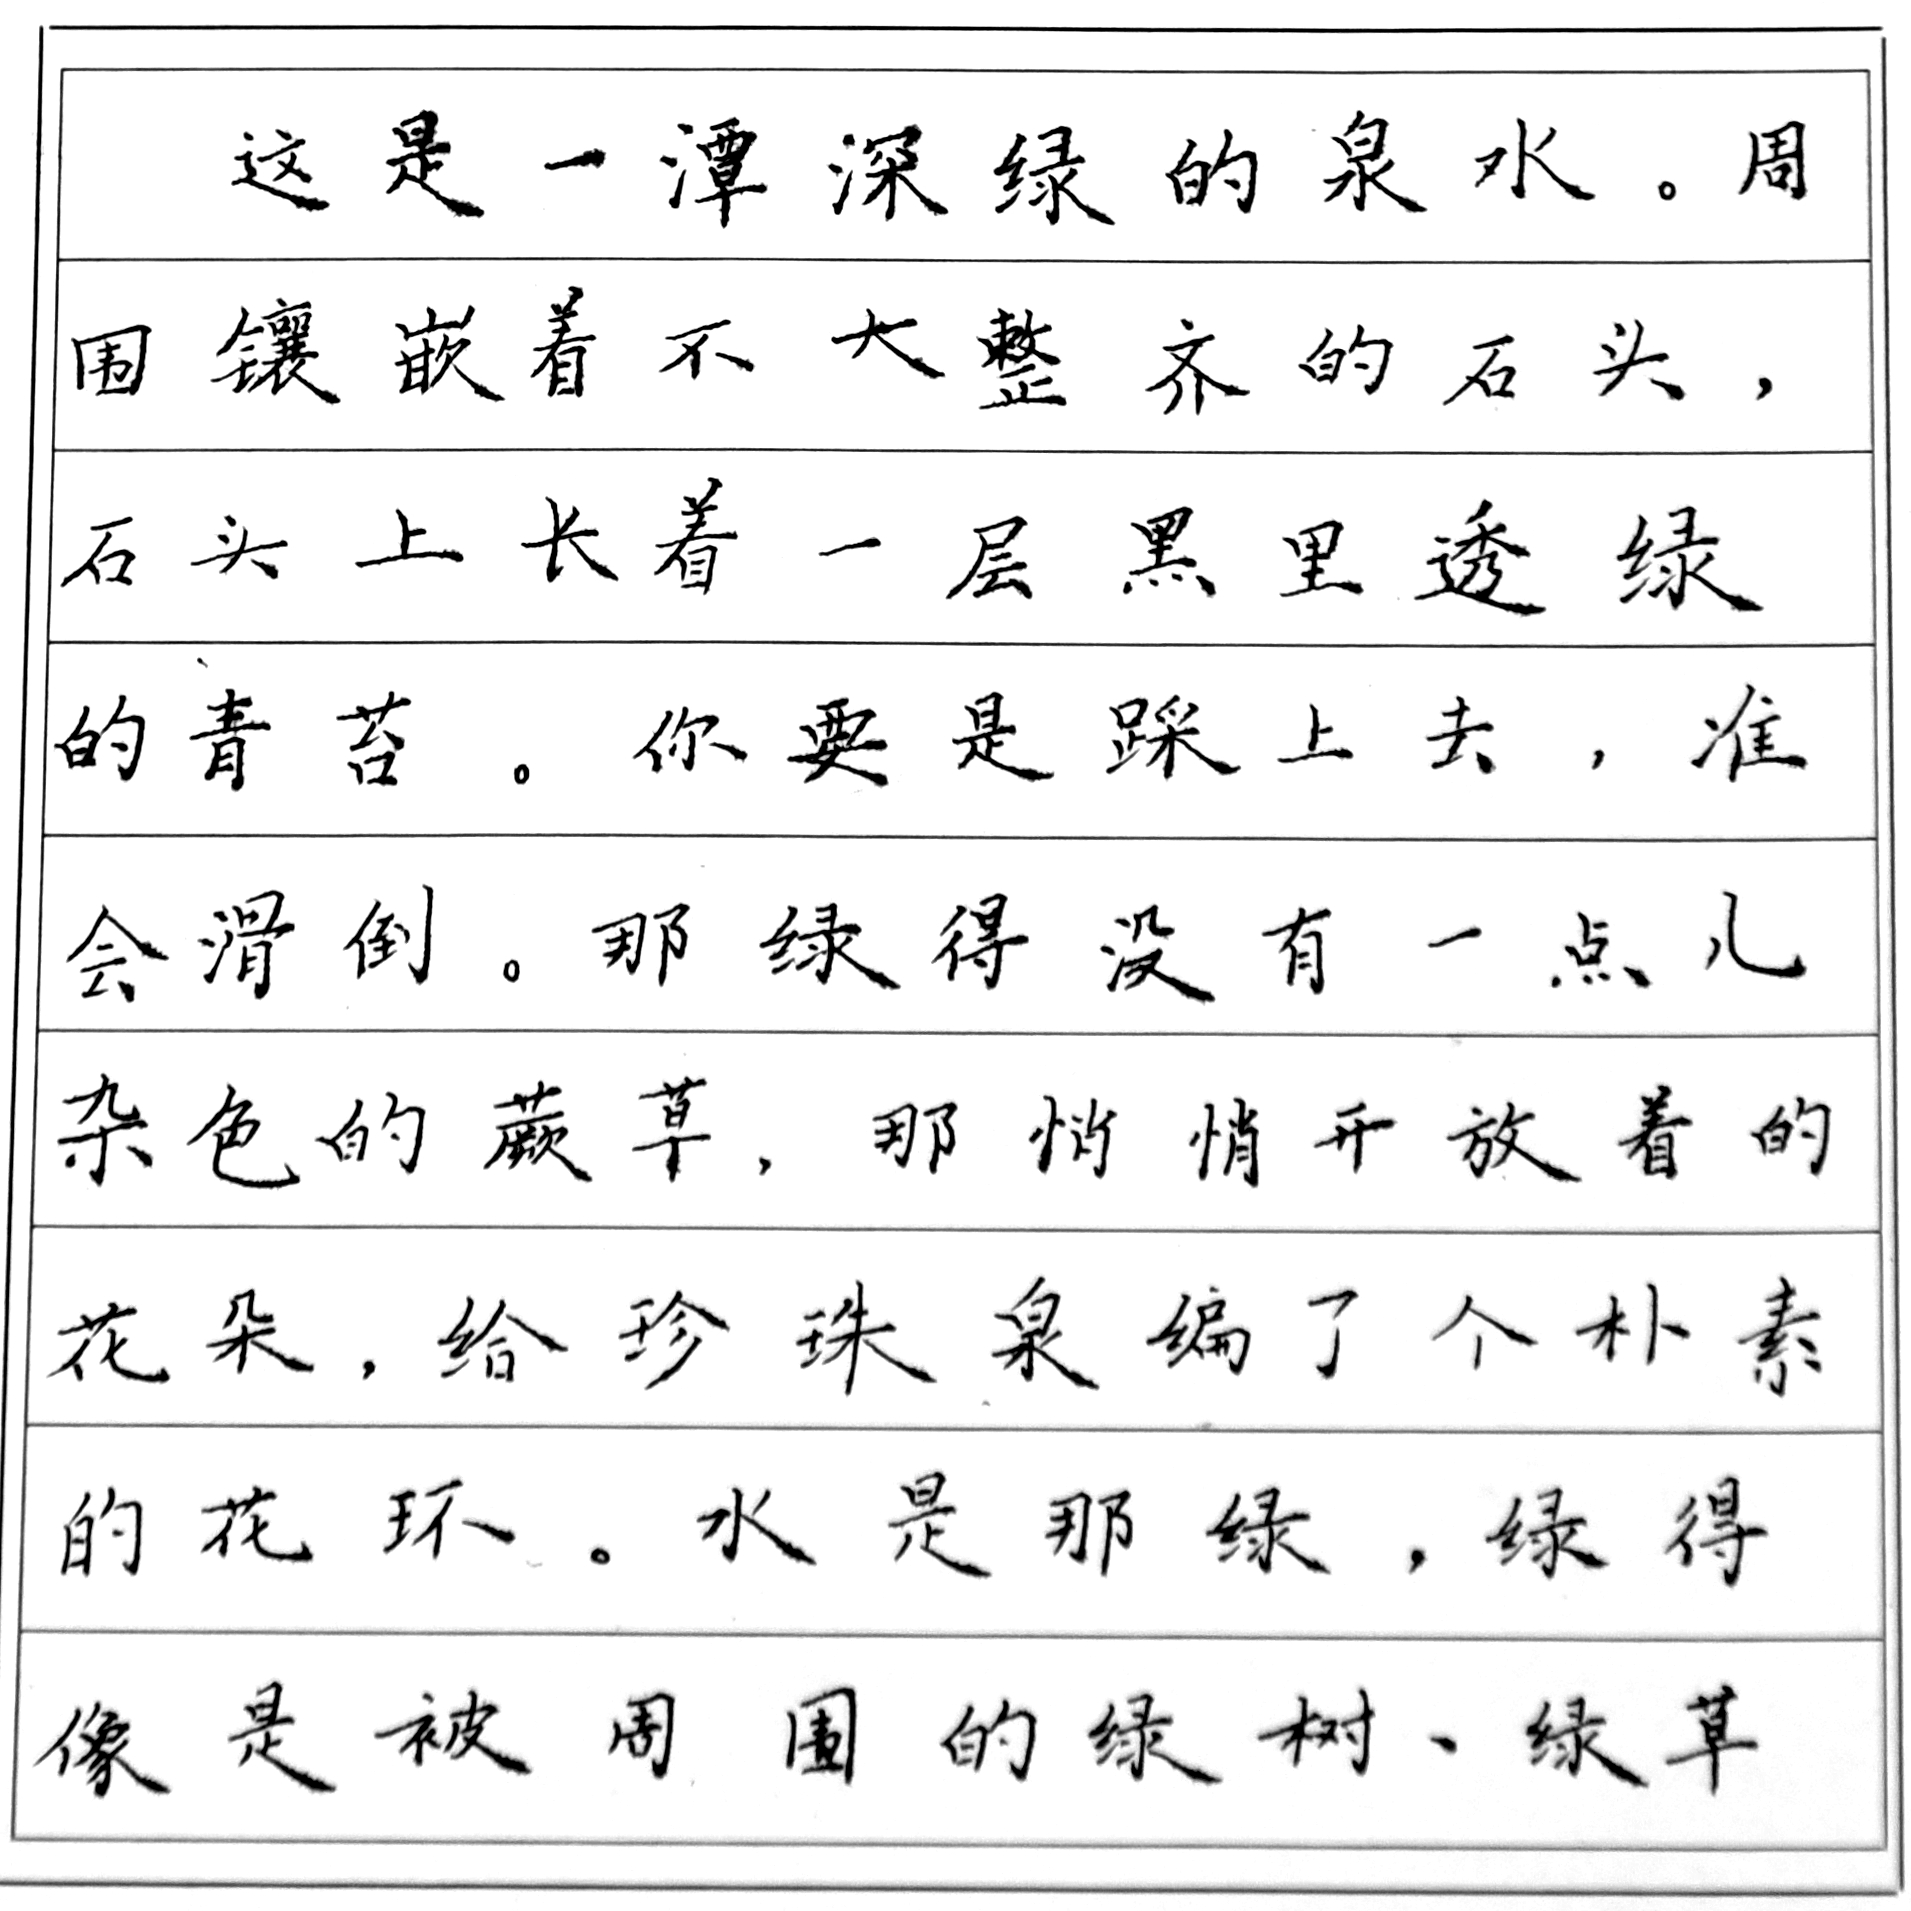 这是一潭深绿的泉水。周
围镶嵌着不大整齐的石头，
石头上长着一层黑里透绿
的青苔。你要是踩上去，准
会滑倒。那绿得没有一点儿
杂色的蕨草，那悄悄开放着的
花朵，给珍珠泉编了个朴素
的花环。水是那绿，绿得
像是被周围的绿树、绿草